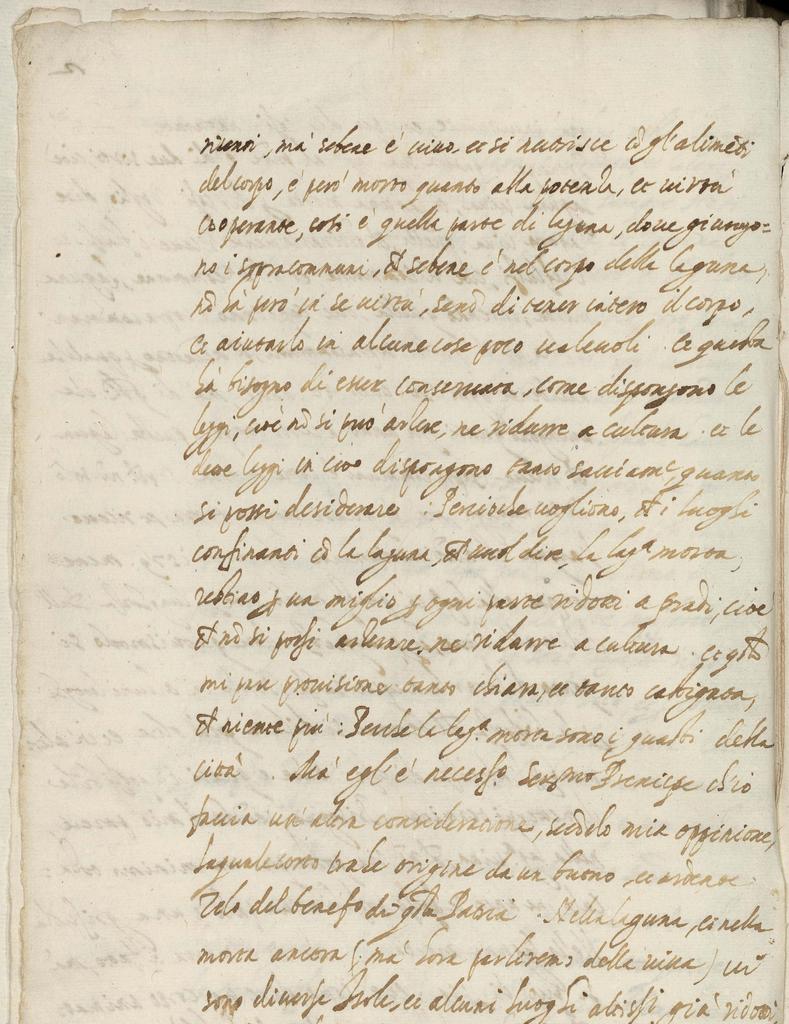 ma' sebene è vivo et si nutrisce cō gl'alimēti
del corpo, è però morto quanto alla potenza, et virtù
cooperante, così è quella parte di laguna, dove giungo=
no i sopracommuni, et sebene è nel corpo della laguna,
nō hà però in se virtù, senō di tener intero il corpo,
et aiutarlo in alcune cose poco valevoli. et questa
hà bisogno di esser conservata, come dispongono le
leggi, cioè nō si può arlere, ne ridurre a cultura. et le
dette leggi in ciò dispongono tanto quanto
si possi desiderare: Perciochè vogliono, i luoghi
confinanti cō la laguna, vuol dire, la lagª morta,
un miglio ogni parte ridotti a gradi, cioè
nō si possi ne ridurre a cultura. et
mi par provisione tanto chiara, et tanto castigata,
niente più: Perchè la lagª morta sono i guasti della
città. Mà egl'è necessº Serᵐᵒ Prencipe ch'io
faccia un'altra consideratione, secōdo mia oppinione,
laquale certo trahe origine da un buono, et ardente
zelo del benefº di Patria. Nella laguna, et nella
morta ancora (mà hora parleremo della viva) vi
sono diverse Isole, et alcuni luoghi già ridotti